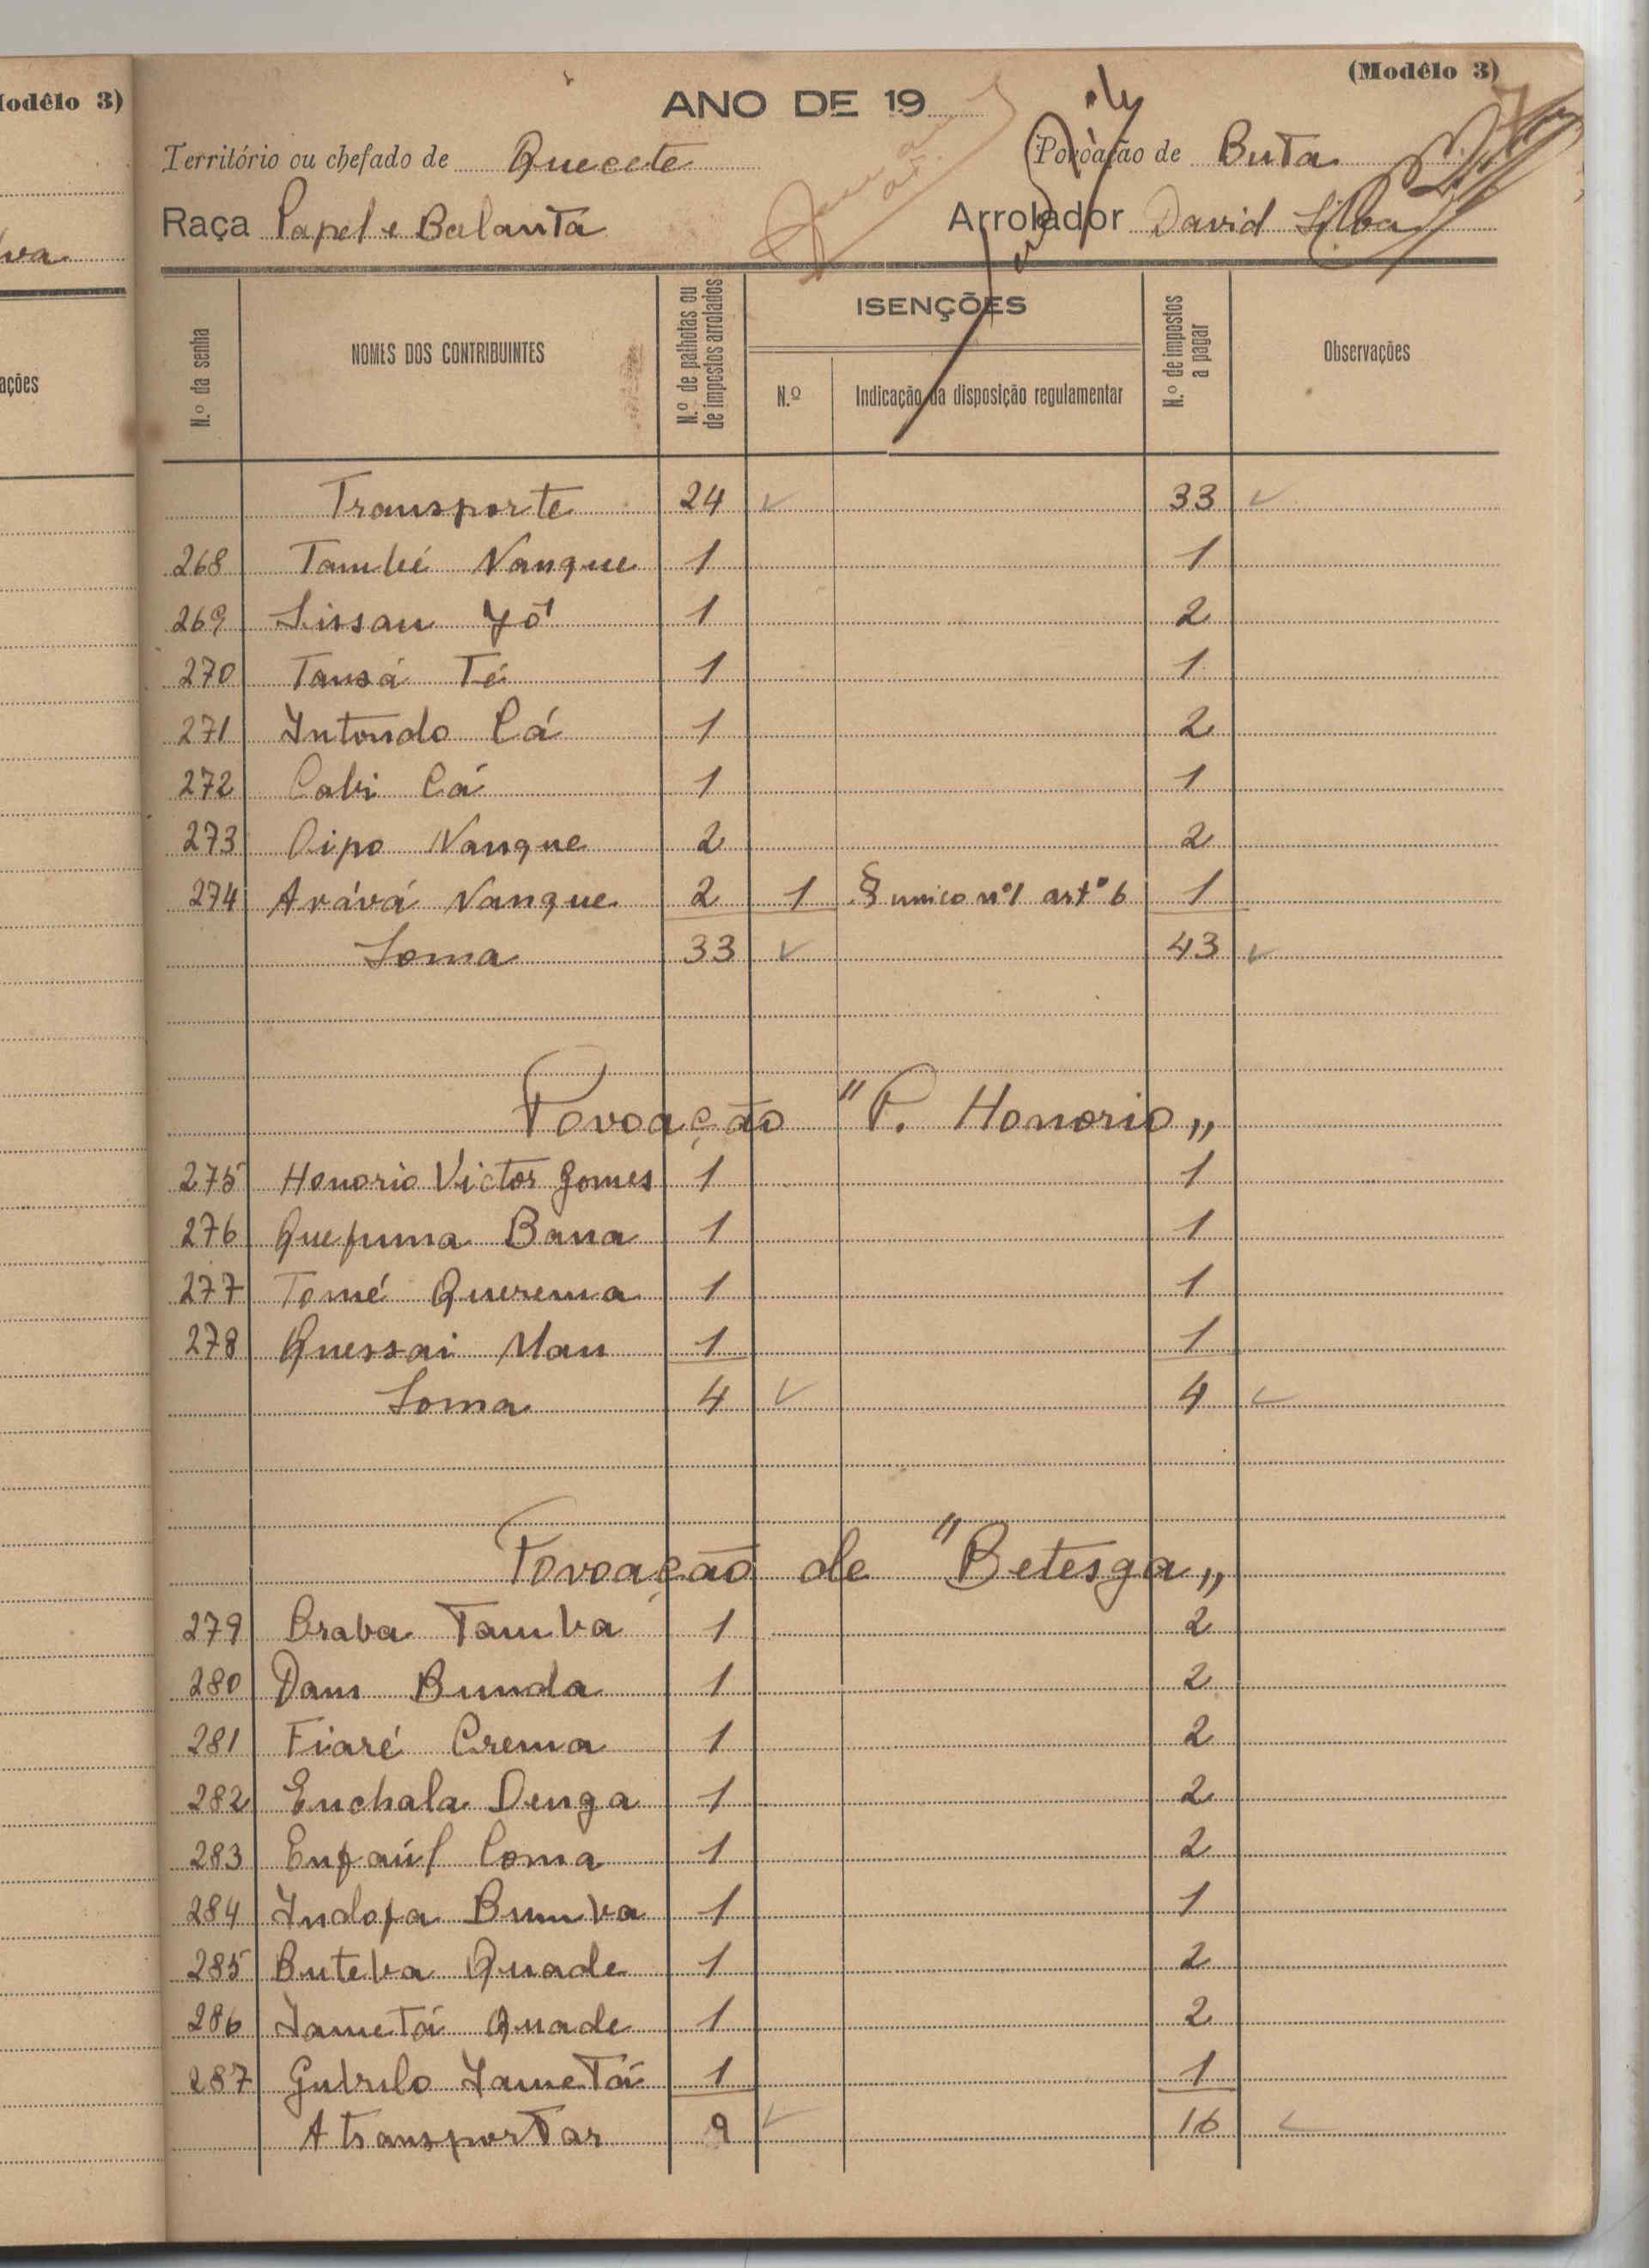 (Modêlo 3)
odêlo 3)
ANO DE 19
Território ou chefado de Quecete Povoação de Buta
Raça Papel e Balanta Arrolador David Silva
va
ações
N.º da senha
NOMES DOS CONTRIBUINTES
N.º de palhotas ou de impostos arrolados
ISENÇÕES
N.º
Indicação da disposição regulamentar
N.º de impostos a pagar
Observações
Transporte 24 33
268 També Nanque 1 1
269 Sissau Yó 1 2
270 Tausá Té 1 1
271 Intondo Cá 1 2
272 Cabi Cá 1 1
273 Oipo Nanque 2 2
274 Arává Nanque 2 1 § unico nº1 artº 6 1
Soma 33 43
Povoação "P. Honorio„
275 Honorio Victor Gomes 1 1
276 Quefuma Bana 1 1
277 Tomé Querema 1 1
278 Quessai Mau 1 1
Soma 4 4
Povoação de "Betesga„
279 Braba Tamba 1 2
280 Dam Bunda 1 2
281 Fiaré Crema 1 2
282 Enchala Denga 1 2
283 Coma 1 2
284 Indofa Bumba 1 1
285 Buteba Quade 1 2
286 Iametá Quade 1 2
287 Gubulo Iametá 1 1
A transportar 9 16